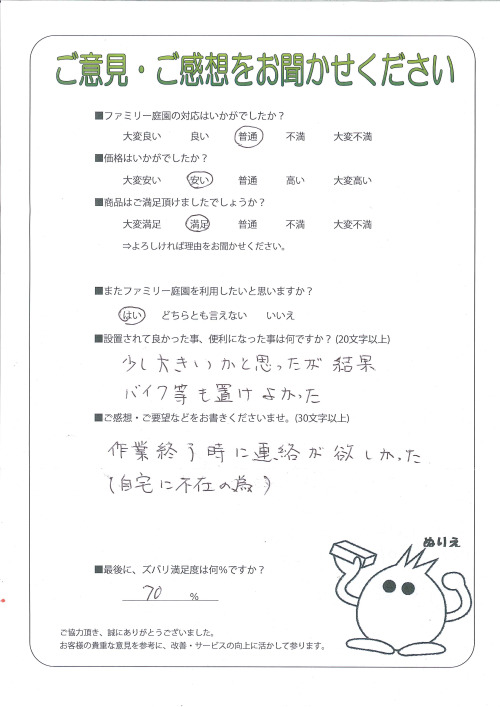 ご意見・ご感想をお聞かせください
■ファミリー庭園の対応はいかがでしたか？
大変良い 良い 普通 不満 大変不満
■価格はいかがでしたか？
大変安い 安い 普通 高い 大変高い
■商品はご満足頂けましたでしょうか？
大変満足 満足 普通 不満 大変不満
⇒よろしければ理由をお聞かせください。
■またファミリー庭園を利用したいと思いますか？
はい どちらとも言えない いいえ
■設置されて良かった事、便利になった事は何ですか？(20文字以上)
少し大きいかと思ったが 結果
バイク等も置けよかった
■ご感想・ご要望などをお書きくださいませ。(30文字以上)
作業終う時に連絡が欲しかった
(自宅に不在の為)
ぬりえ
■最後に、ズバリ満足度は何％ですか？
70 ％
ご協力頂き、誠にありがとうございました。
お客様の貴重な意見を参考に、改善・サービスの向上に活かして参ります。